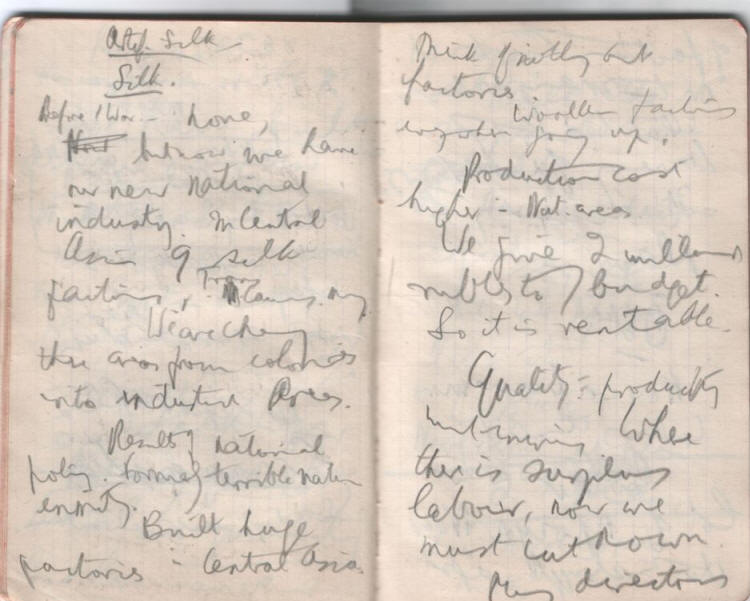 Artif. Silk.
Silk.
Before War - none,
but now we have
our new national
industry. In Central
Asia 9 silk
factories, Trans
We are changing
these areas from colonies
into industrial areas.
Results of national
policy. Formerly terrible nation
enmity.
Built huge
factories - Central Asia.
Think of nothing but
factories.
Woollen factories
everywhere going up.
Production cost
higher - Nat. areas
We give 2 million
rubles to budget.
So it is rentable.
Quality: productivity
improving Where
there is surplus
labour, now we
must cut down.
Many directors